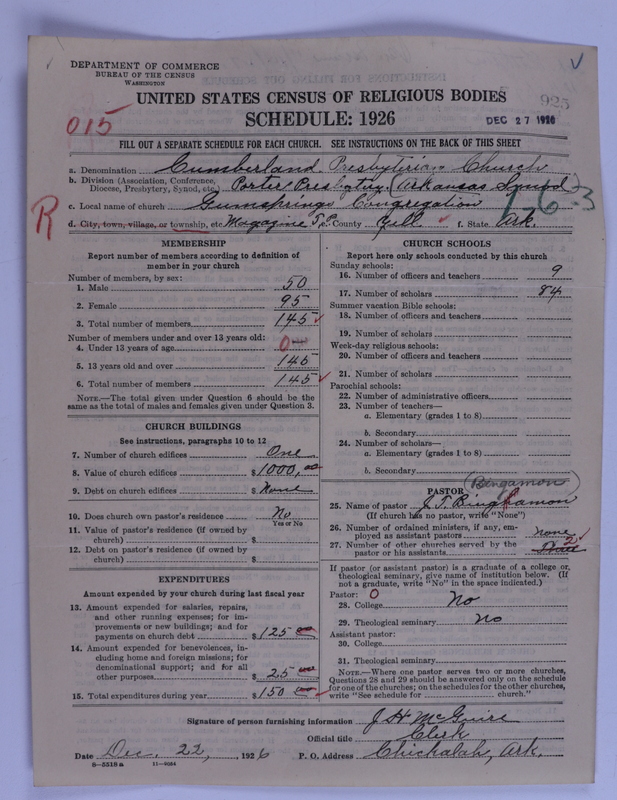 DEPARTMENT OF COMMERCE
BUREAU OF THE CENSUS
WASHINGTON
UNITED STATES CENSUS OF RELIGIOUS BODIES
925
015
SCHEDULE: 1926
DEC 27 1926
FILL OUT A SEPARATE SCHEDULE FOR EACH CHURCH. SEE INSTRUCTIONS ON THE BACK OF THIS SHEET
a. Denomination Cumberland Presbyterian Church
b. Division (Association, Conference, Diocese, Presbytery, Synod, etc.) Porter Presbytery, Arkansas Synod
c. Local name of church Gumsprings Congregation
1-6-3
R
d. City, town, village, or township, etc. Magazine T.P. e. County Yell f. State Ark.
MEMBERSHIP
Report number of members according to definition of
member in your church
Number of members, by sex:
1. Male 50
2. Female 95
3. Total number of members 145
Number of members under and over 13 years old:
4. Under 13 years of age 0
5. 13 years old and over 145
6. Total number of members 145
NOTE.—The total given under Question 6 should be the
same as the total of males and females given under Question 3.
CHURCH BUILDINGS
See instructions, paragraphs 10 to 12
7. Number of church edifices One
8. Value of church edifices $ 1000,00
9. Debt on church edifices $ None
10. Does church own pastor's residence? No
Yes or No
11. Value of pastor's residence (if owned by
church) $
12. Debt on pastor's residence (if owned by
church) $
EXPENDITURES
Amount expended by your church during last fiscal year
13. Amount expended for salaries, repairs,
and other running expenses; for im-
provements or new buildings; and for
payments on church debt $ 125 00
14. Amount expended for benevolences, in-
cluding home and foreign missions; for
denominational support; and for all
other purposes $ 25 00
15. Total expenditures during year $ 150 00
CHURCH SCHOOLS
Report here only schools conducted by this church
Sunday schools:
16. Number of officers and teachers 9
17. Number of scholars 84
Summer vacation Bible schools:
18. Number of officers and teachers
19. Number of scholars
Week-day religious schools:
20. Number of officers and teachers
21. Number of scholars
Parochial schools:
22. Number of administrative officers
23. Number of teachers—
a. Elementary (grades 1 to 8)
b. Secondary
24. Number of scholars—
a. Elementary (grades 1 to 8)
b. Secondary
Bingamon
PASTOR
25. Name of pastor J. T. Binghamon
(If church has no pastor, write "None")
26. Number of ordained ministers, if any, em-
ployed as assistant pastors none
27. Number of other churches served by the
pastor or his assistants 2
If pastor (or assistant pastor) is a graduate of a college or
theological seminary, give name of institution below. (If
not a graduate, write "No" in the space indicated.)
Pastor: 0
28. College No
29. Theological seminary No
Assistant pastor:
30. College
31. Theological seminary
NOTE.—Where one pastor serves two or more churches,
Questions 28 and 29 should be answered only on the schedule
for one of the churches; on the schedules for the other churches,
write "See schedule for church."
Signature of person furnishing information J H McGuire
Official title Clerk
Date Dec. 22, 1926 P. O. Address Chickalah, Ark.
8—5518 a 11—9084